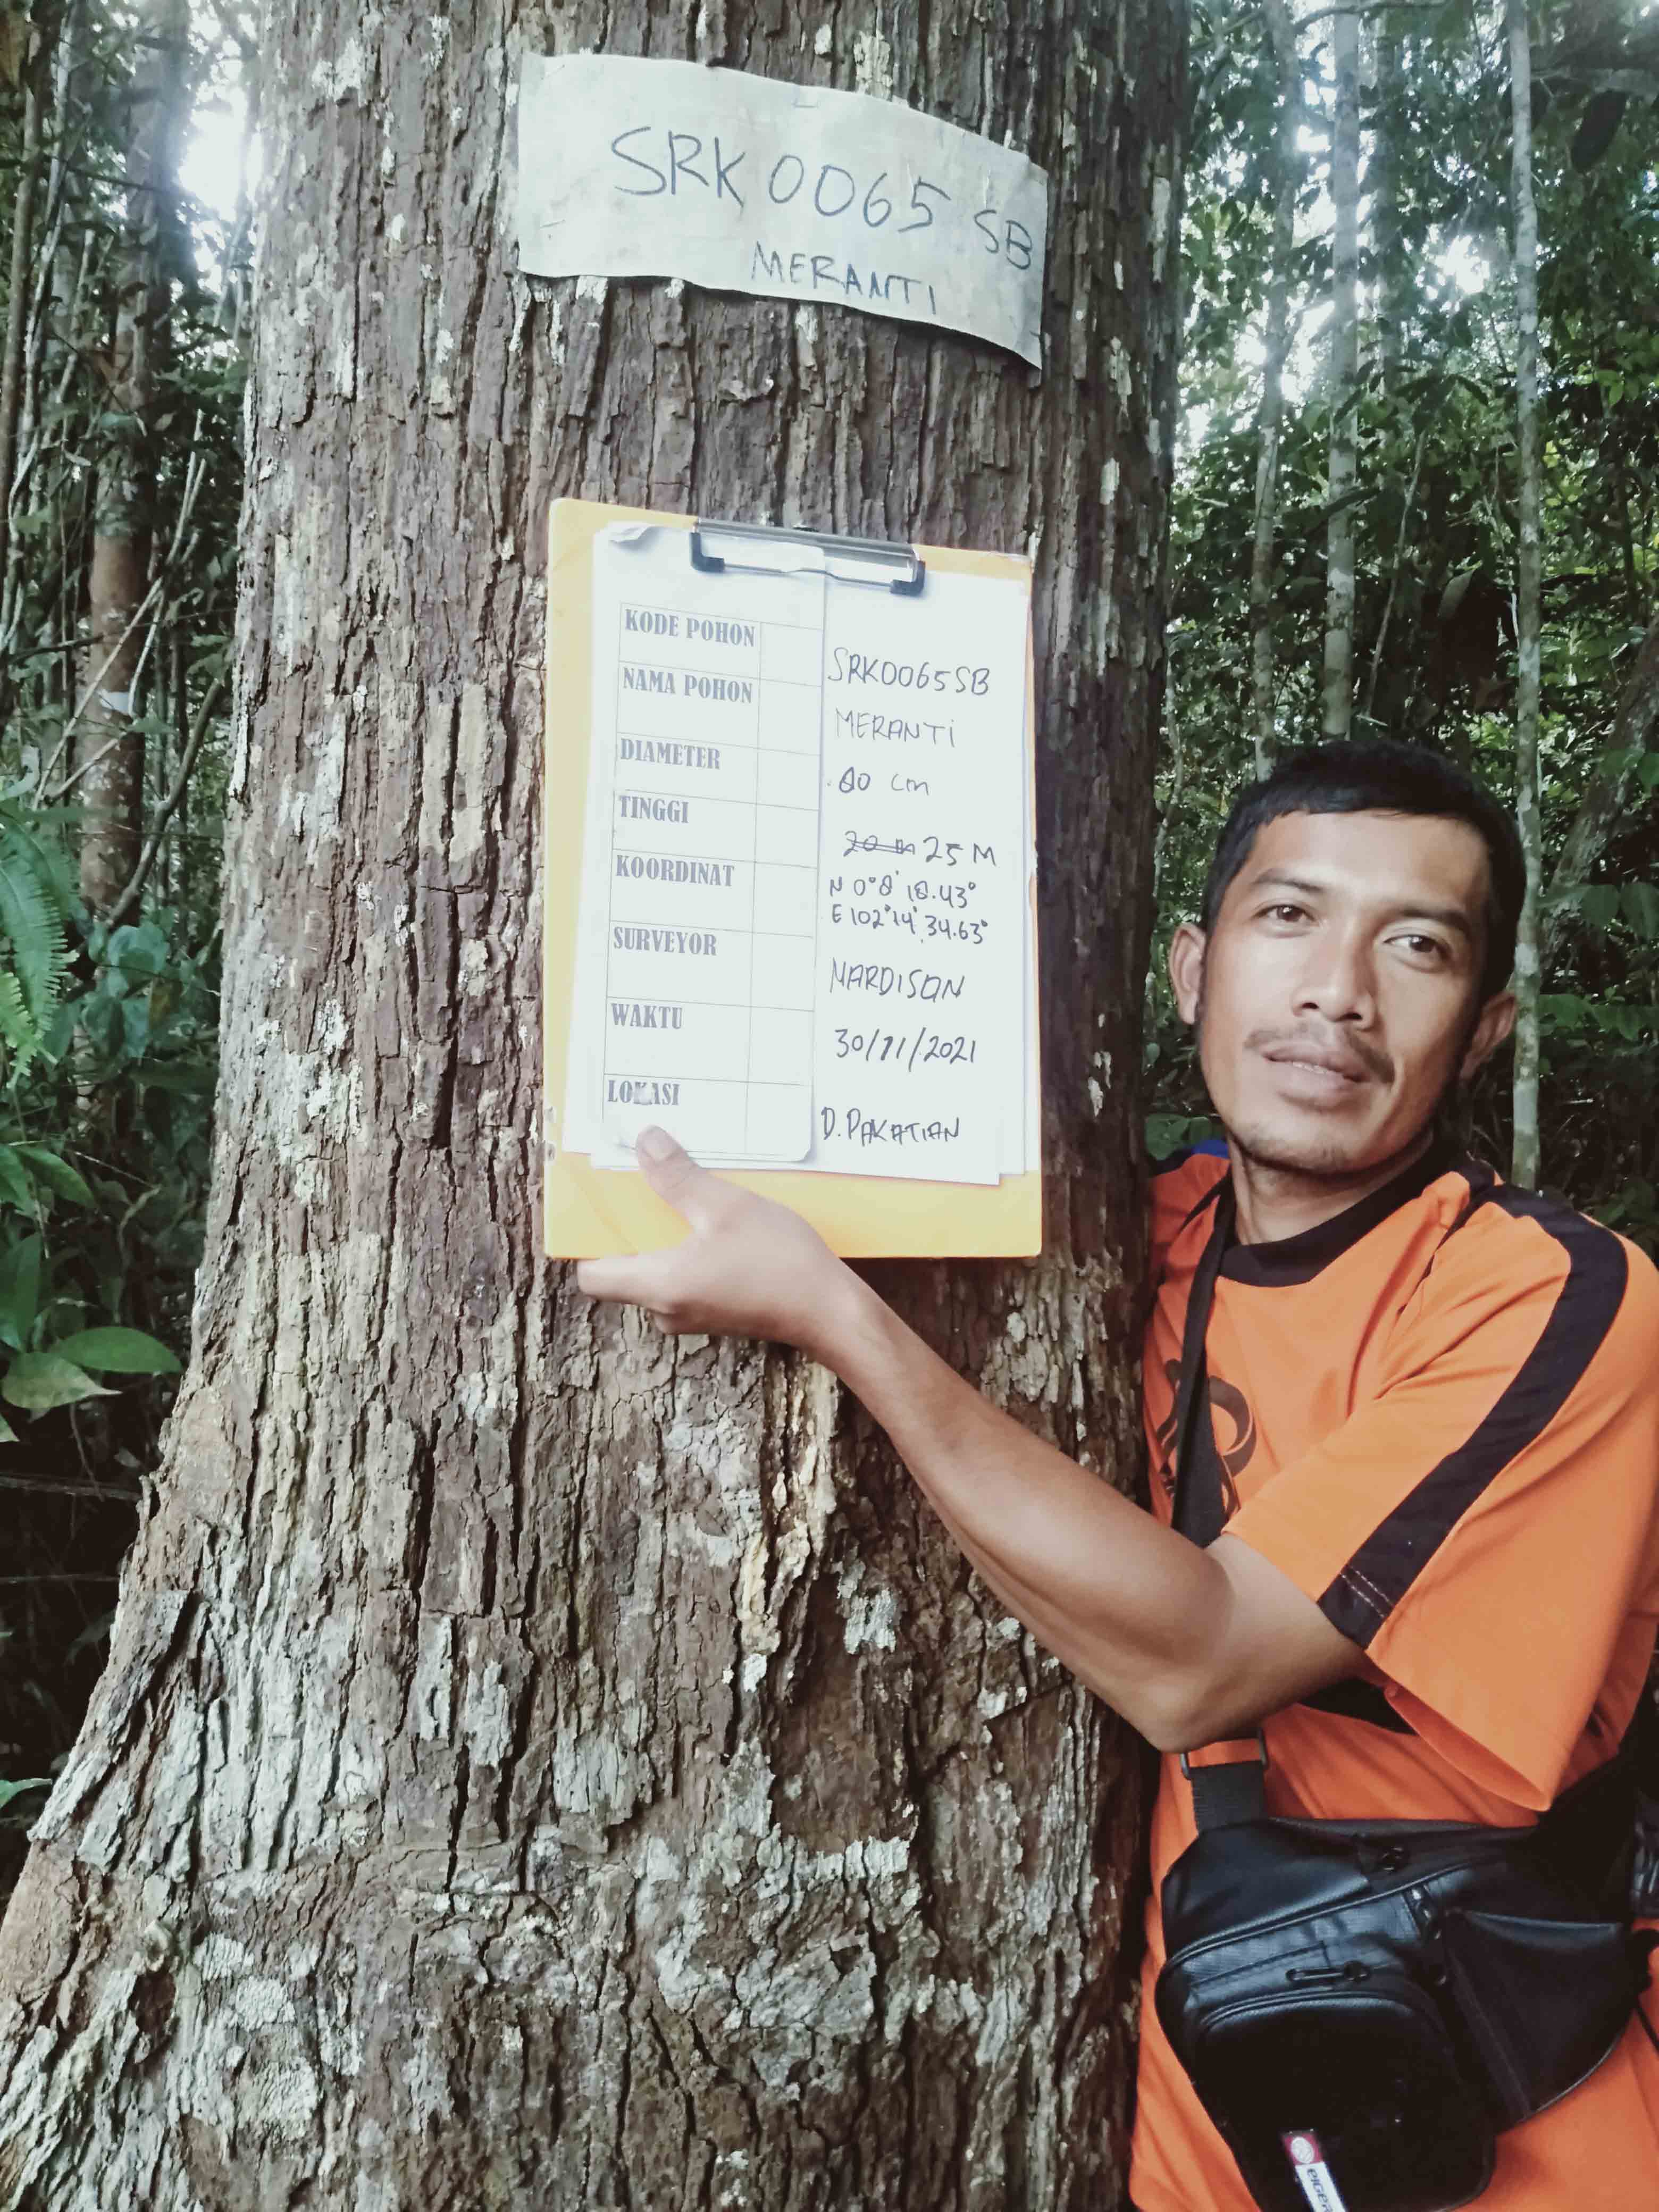 SRK 0065 SB
MERANTI
KODE POHON SRK0065SB
NAMA POHON MERANTI
DIAMETER 80 cm
TINGGI 20 m 25 M
KOORDINAT N 0°8' 18.43°
E 102°14' 34.63°
SURVEYOR MARDISON
WAKTU 30/11/2021
LOKASI D.PAKATIAN